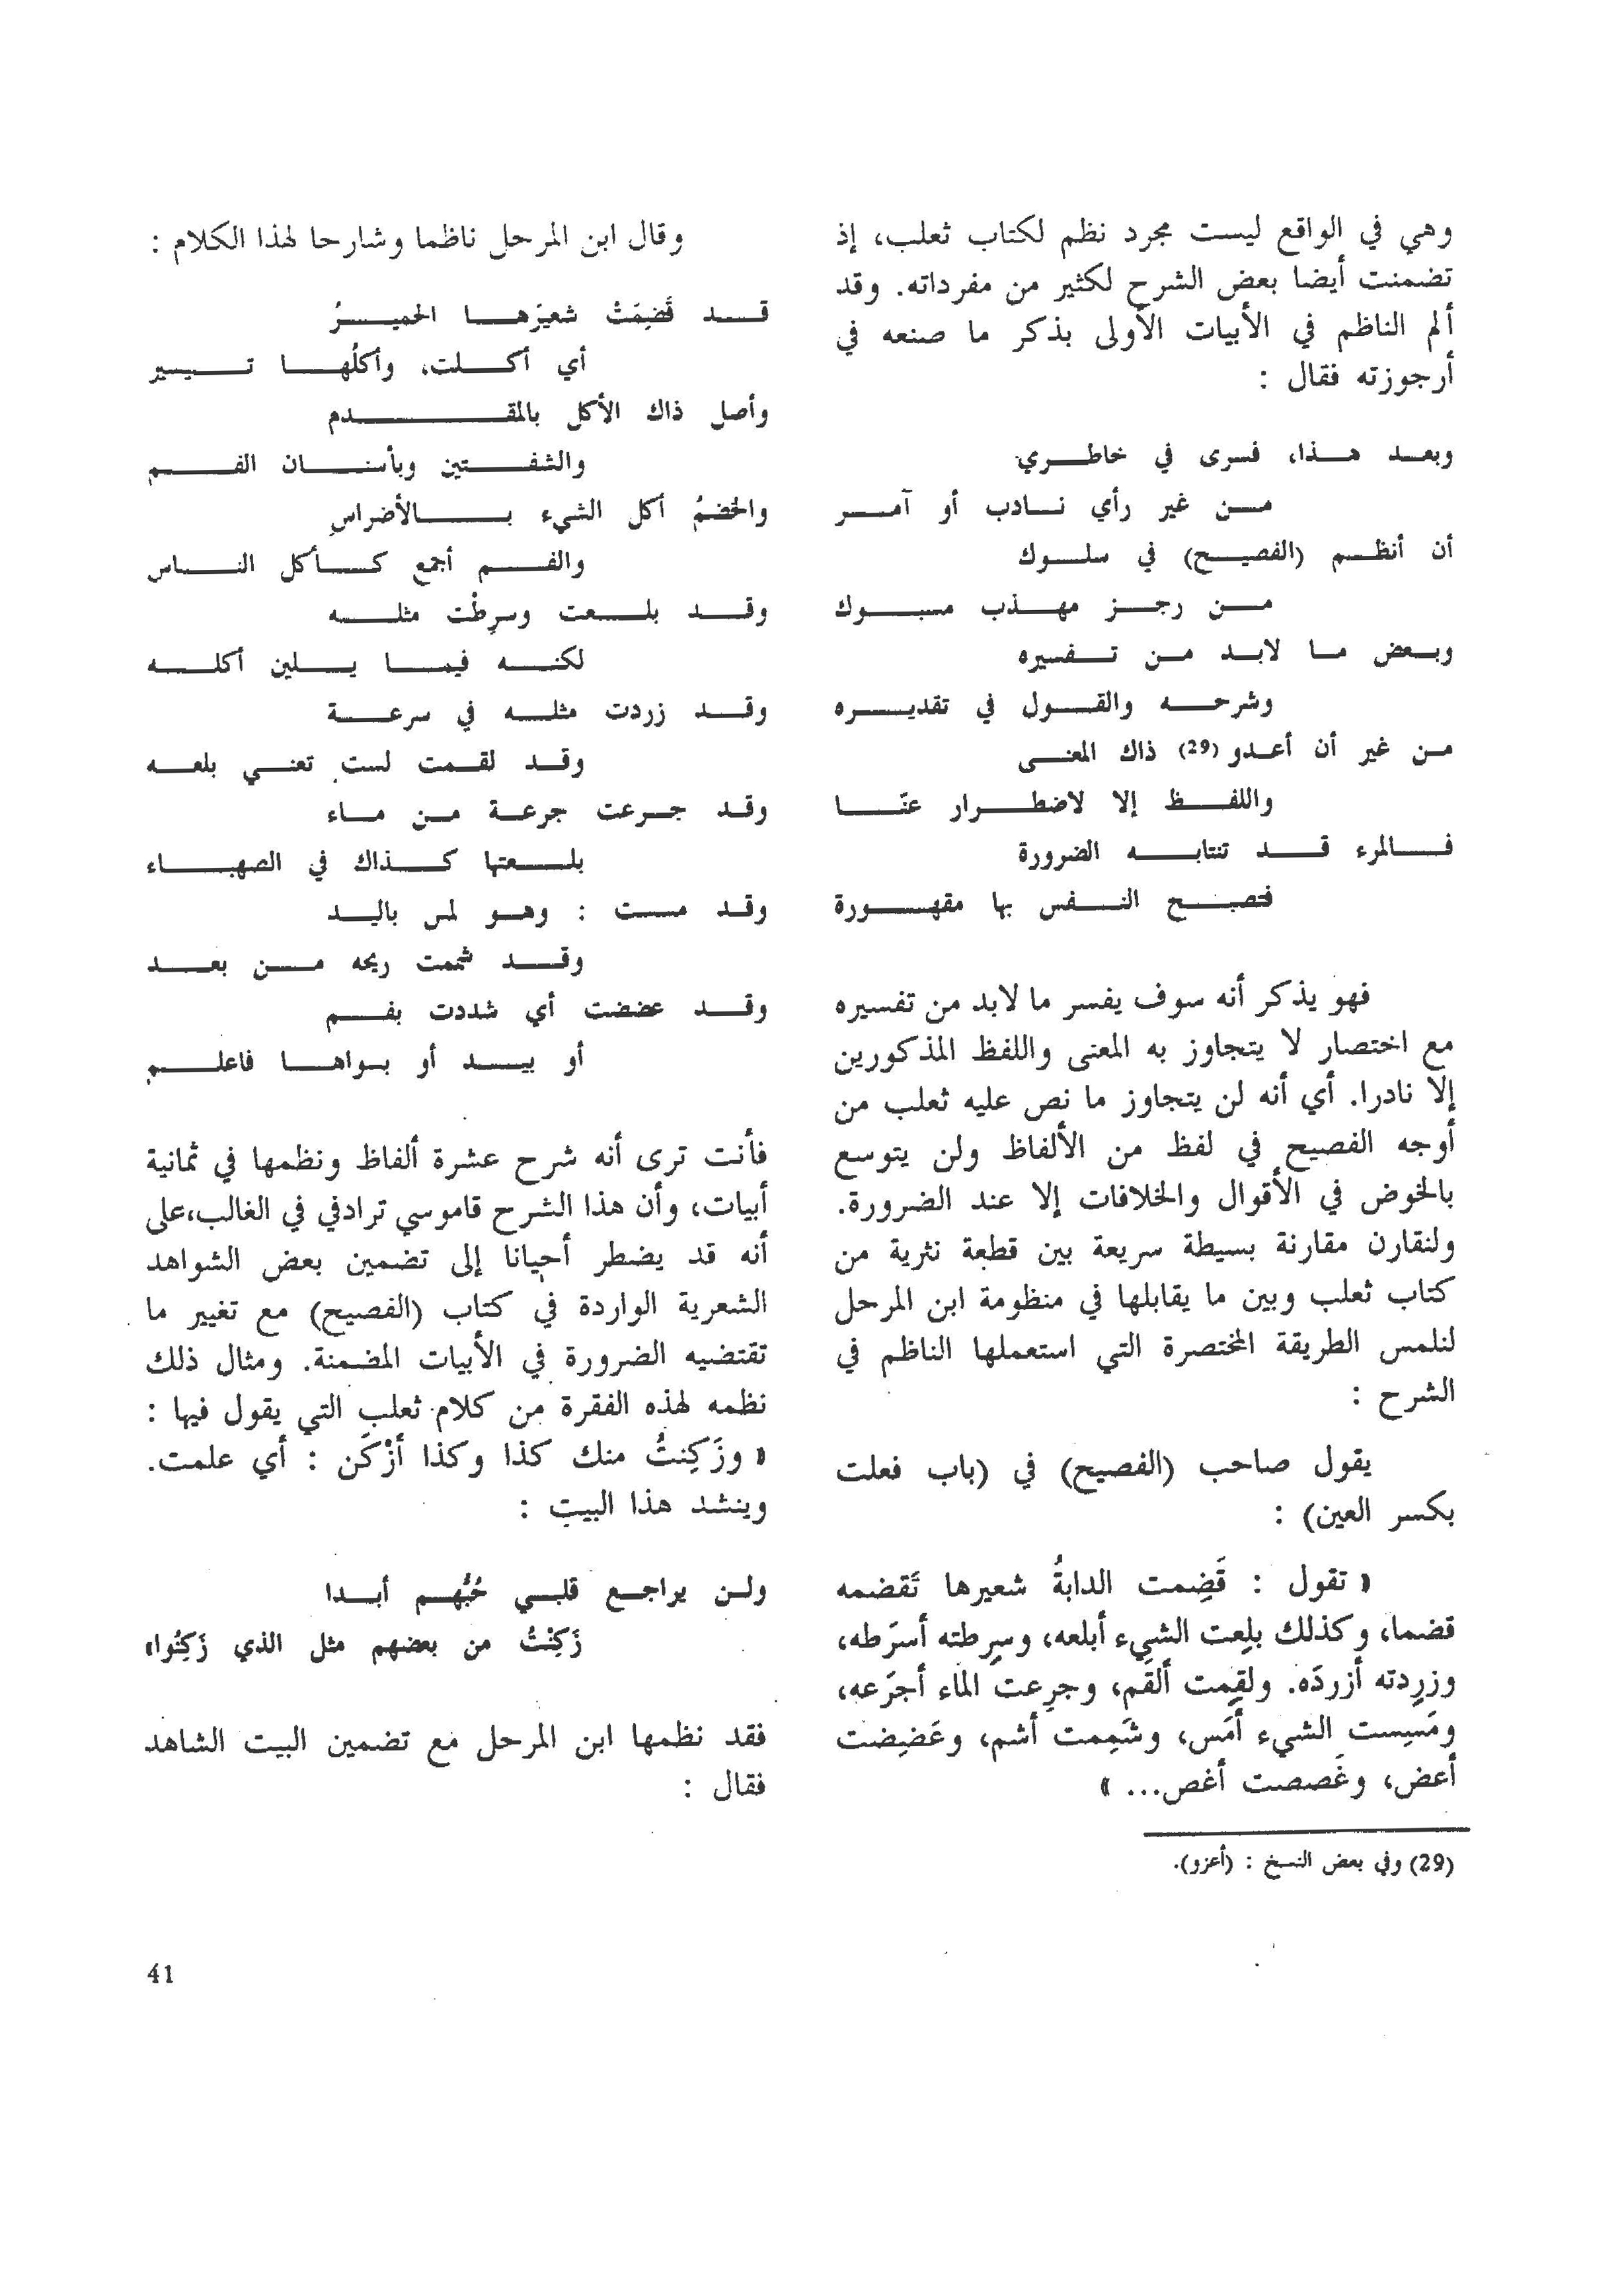 وهي في الواقع ليست مجرد نظم لكتاب ثعلب، إذ
تضمنت أيضا بعض الشرح لكثير من مفرداته. وقد
ألم الناظم في الأبيات الأولى بذكر ما صنعه في
أرجوزته فقال :
وبعد هذا، فسرى في خاطري
من غير رأي نادب أو آمر
أن أنظم (الفصيح) في سلوك
من رجز مهذب مسبوك
وبعض ما لابد من تفسيره
وشرحه والقول في تقديره
من غير أن أعدو (29) ذاك المعنى
واللفظ إلا لاضطرار عنّا
فالمرء قد تنتابه الضرورة
فتصبح النفس بها مقهورة
فهو يذكر أنه سوف يفسر ما لابد من تفسيره
مع اختصار لا يتجاوز به المعنى واللفظ المذكورين
إلا نادرا. أي أنه لن يتجاوز ما نص عليه ثعلب من
أوجه الفصيح في لفظ من الألفاظ ولن يتوسع
بالخوض في الأقوال والخلافات إلا عند الضرورة.
ولنقارن مقارنة بسيطة سريعة بين قطعة نثرية من
كتاب ثعلب وبين ما يقابلها في منظومة ابن المرحل
لنلمس الطريقة المختصرة التي استعملها الناظم في
الشرح :
يقول صاحب (الفصيح) في (باب فعلت
بكسر العين) :
« تقول : قَضِمت الدابةُ شعيرها تَقضمه
قضما، وكذلك بلِعت الشيء أبلعه، وسرِطته أسرَطه،
وزرِدته أزردَه. ولقِمت ألقَم، وجرِعت الماء أجرَعه،
ومَسِست الشيء أمَس، وشَمِمت أشم، وعَضِضت
أعض، وغَصصت أغص... »
(29) وفي بعض النسخ : (أعزو).
وقال ابن المرحل ناظما وشارحا لهذا الكلام :
قد قَضِمَتْ شعيرَها الحميرُ
أي أكلت، وأكلُها تيسير
وأصل ذاك الأكل بالمقدم
والشفتين وبأسنان الفم
والخضمُ أكل الشيء بالأضراسِ
والفم أجمع كأكل الناس
وقد بلعت وسرِطْت مثله
لكنه فيما يلين أكله
وقد زردت مثله في سرعة
وقد لقمت لست تعني بلعه
وقد جرعت جرعة من ماء
بلعتها كذاك في الصهباء
وقد مست : وهو لمس باليد
وقد شممت ريحه من بعد
وقد عضضت أي شددت بفم
أو بيد أو بسواها فاعلم
فأنت ترى أنه شرح عشرة ألفاظ ونظمها في ثمانية
أبيات، وأن هذا الشرح قاموسي ترادفي في الغالب،على
أنه قد يضطر أحيانا إلى تضمين بعض الشواهد
الشعرية الواردة في كتاب (الفصيح) مع تغيير ما
تقتضيه الضرورة في الأبيات المضمنة. ومثال ذلك
نظمه لهذه الفقرة من كلام ثعلب التي يقول فيها :
« وزَكِنتُ منك كذا وكذا أزْكَن : أي علمت.
وينشد هذا البيت :
ولن يراجع قلبي حُبُّهم أبدا
زَكِنْتُ من بعضهم مثل الذي زَكِنُوا»
فقد نظمها ابن المرحل مع تضمين البيت الشاهد
فقال :
41